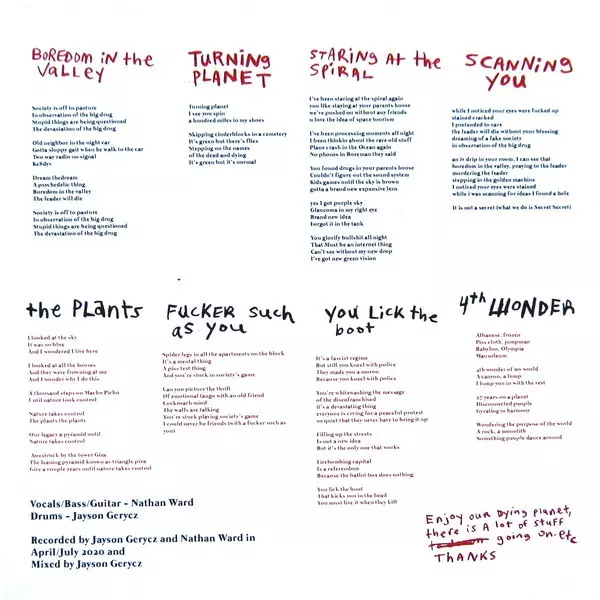 BOREDOM IN the
VALLEY
Society is off to pasture
In observation of the big drug
Stupid things are being questioned
The devastation of the big drug
Old neighbor in the night car
Gotta sloppy gait when he walk to the car
Two way radio no signal
Dream the dream
A psychedelic thing
Boredom in the valley
The leader will die
Society is off to pasture
In observation of the big drug
Stupid things are being questioned
The devastation of the big drug
TURNING
PLANET
Turning planet
I see you spin
a hundred miles in my shoes
Skipping cinderblocks in a cemetery
It's green but there's flies
Stepping on the names
of the dead and dying
It's green but it's normal
STARING At the
SPIRAL
I've been staring at the spiral again
you like staying at your parents house
we've pushed on without any friends
u love the idea of space tourism
I've been processing moments all night
I been thinkin about the rare old stuff
Plane crash in the Ocean again
No phones in Bozeman they said
You found drugs in your parents house
Couldn't figure out the sound system
Kids games until the sky is brown
gotta a brand new expensive lens
yes I got purple sky
Glaucoma in my right eye
Brand new idea
Forgot it in the tank
You glorify bullshit all night
That Must be an internet thing
Can't see without my new drop
I've got new green vision
SCANNING
YOU
while I noticed your eyes were fucked up
stained cracked
I pretended to care
the leader will die without your blessing
dreaming of a fake society
in observation of the big drug
an iv drip in your room, I can see that
boredom in the valley, praying to the leader
murdering the leader
stepping in the golden machine
I noticed your eyes were stained
while i was scanning for ideas I found a hole
It is not a secret (what we do is Secret Secret)
the PLANTS
I looked at the sky
It was so blue
And I wondered I live here
I looked at all the horses
And they were frowning at me
And I wonder why I do this
A thousand steps on Machu Pichu
Until nature took control
Nature takes control
The plants the plants
Our legacy a pyramid until
Nature takes control
Awestruck by the tower Giza
The leaning pyramid known as triangle pizza
Give a couple years until nature takes control
FUCKER such
as YOU
Spider legs in all the apartments on the block
It's a mental thing
A piss test thing
And you're stuck in society's game
Can you picture the thrill
Of emotional tango with an old friend
Cockroach mind
The walls are talking
You're stuck playing society's game
I could never be friends (with a fucker such as
you)
YOU LICK the
boot
It's a fascist regime
But still you kneel with police
They made you a moron
Because you kneel with police
You're whitewashing the message
of the disenfranchised
it's a devastating thing
everyone is crying for a peaceful protest
so quiet that they never have to bring it up
Filling up the streets
Is not a new idea
But it's the only one that works
Firebombing capital
Is a referendum
Because the ballot box does nothing
You lick the boot
That kicks you in the head
You must live it when they kill
4th WONDER
Albanese, frozen
Piss cloth, jumpman
Babylon, Olympia
Mausoleum
4th wonder of my world
A canyon, a lump
I lump you in with the rest
27 years on a planet
Disconnected people
Gyrating in harmony
Wondering the purpose of the world
A rock, a monolith
Something people dance around
Vocals/Bass/Guitar - Nathan Ward
Drums - Jayson Gerycz
Recorded by Jayson Gerycz and Nathan Ward in
April/July 2020 and
Mixed by Jayson Gerycz
Enjoy our Dying planet,
there is A lot of stuff
going on. etc
THANKS